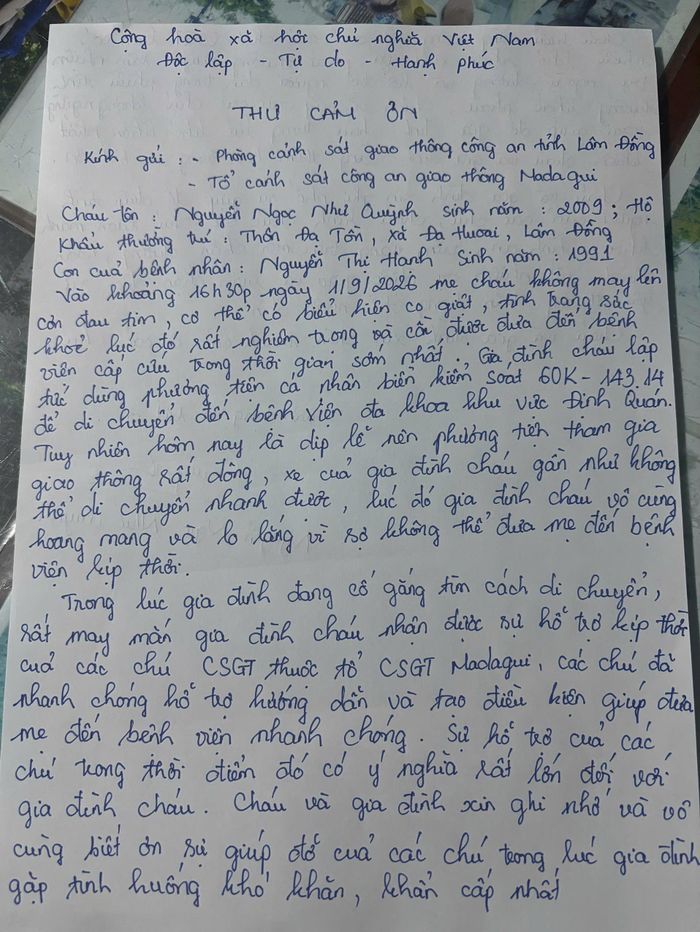 Cộng hoà xã hội chủ nghĩa Việt Nam
Độc lập - Tự do - Hạnh phúc
THƯ CẢM ƠN
Kính gửi : - Phòng cảnh sát giao thông công an tỉnh Lâm Đồng
- Tổ cảnh sát công an giao thông Madagui
Cháu tên : Nguyễn Ngọc Như Quỳnh sinh năm : 2009 ; Hộ
khẩu thường trú : Thôn Đạ Tồn, xã Đạ Huoai, Lâm Đồng
Con của bệnh nhân : Nguyễn Thị Hạnh Sinh năm : 1991
Vào khoảng 16h30p ngày 1/9/2026 mẹ cháu không may lên
cơn đau tim, cơ thể có biểu hiện co giật, tình trạng sức
khoẻ lúc đó rất nghiêm trọng và cần được đưa đến bệnh
viện cấp cứu trong thời gian sớm nhất. Gia đình cháu lập
tức dùng phương tiện cá nhân biển kiểm soát 60K - 143.14
để di chuyển đến bệnh viện đa khoa khu vực Định Quán.
Tuy nhiên hôm nay là dịp lễ nên phương tiện tham gia
giao thông rất đông, xe của gia đình cháu gần như không
thể di chuyển nhanh được, lúc đó gia đình cháu vô cùng
hoang mang và lo lắng vì sợ không thể đưa mẹ đến bệnh
viện kịp thời.
Trong lúc gia đình đang cố gắng tìm cách di chuyển,
rất may mắn gia đình cháu nhận được sự hỗ trợ kịp thời
của các chú CSGT thuộc tổ CSGT Madagui, các chú đã
nhanh chóng hỗ trợ hướng dẫn và tạo điều kiện giúp đưa
mẹ đến bệnh viện nhanh chóng. Sự hỗ trợ của các
chú trong thời điểm đó có ý nghĩa rất lớn đối với
gia đình cháu. Cháu và gia đình xin ghi nhớ và vô
cùng biết ơn sự giúp đỡ của các chú trong lúc gia đình
gặp tình huống khó khăn, khẩn cấp nhất